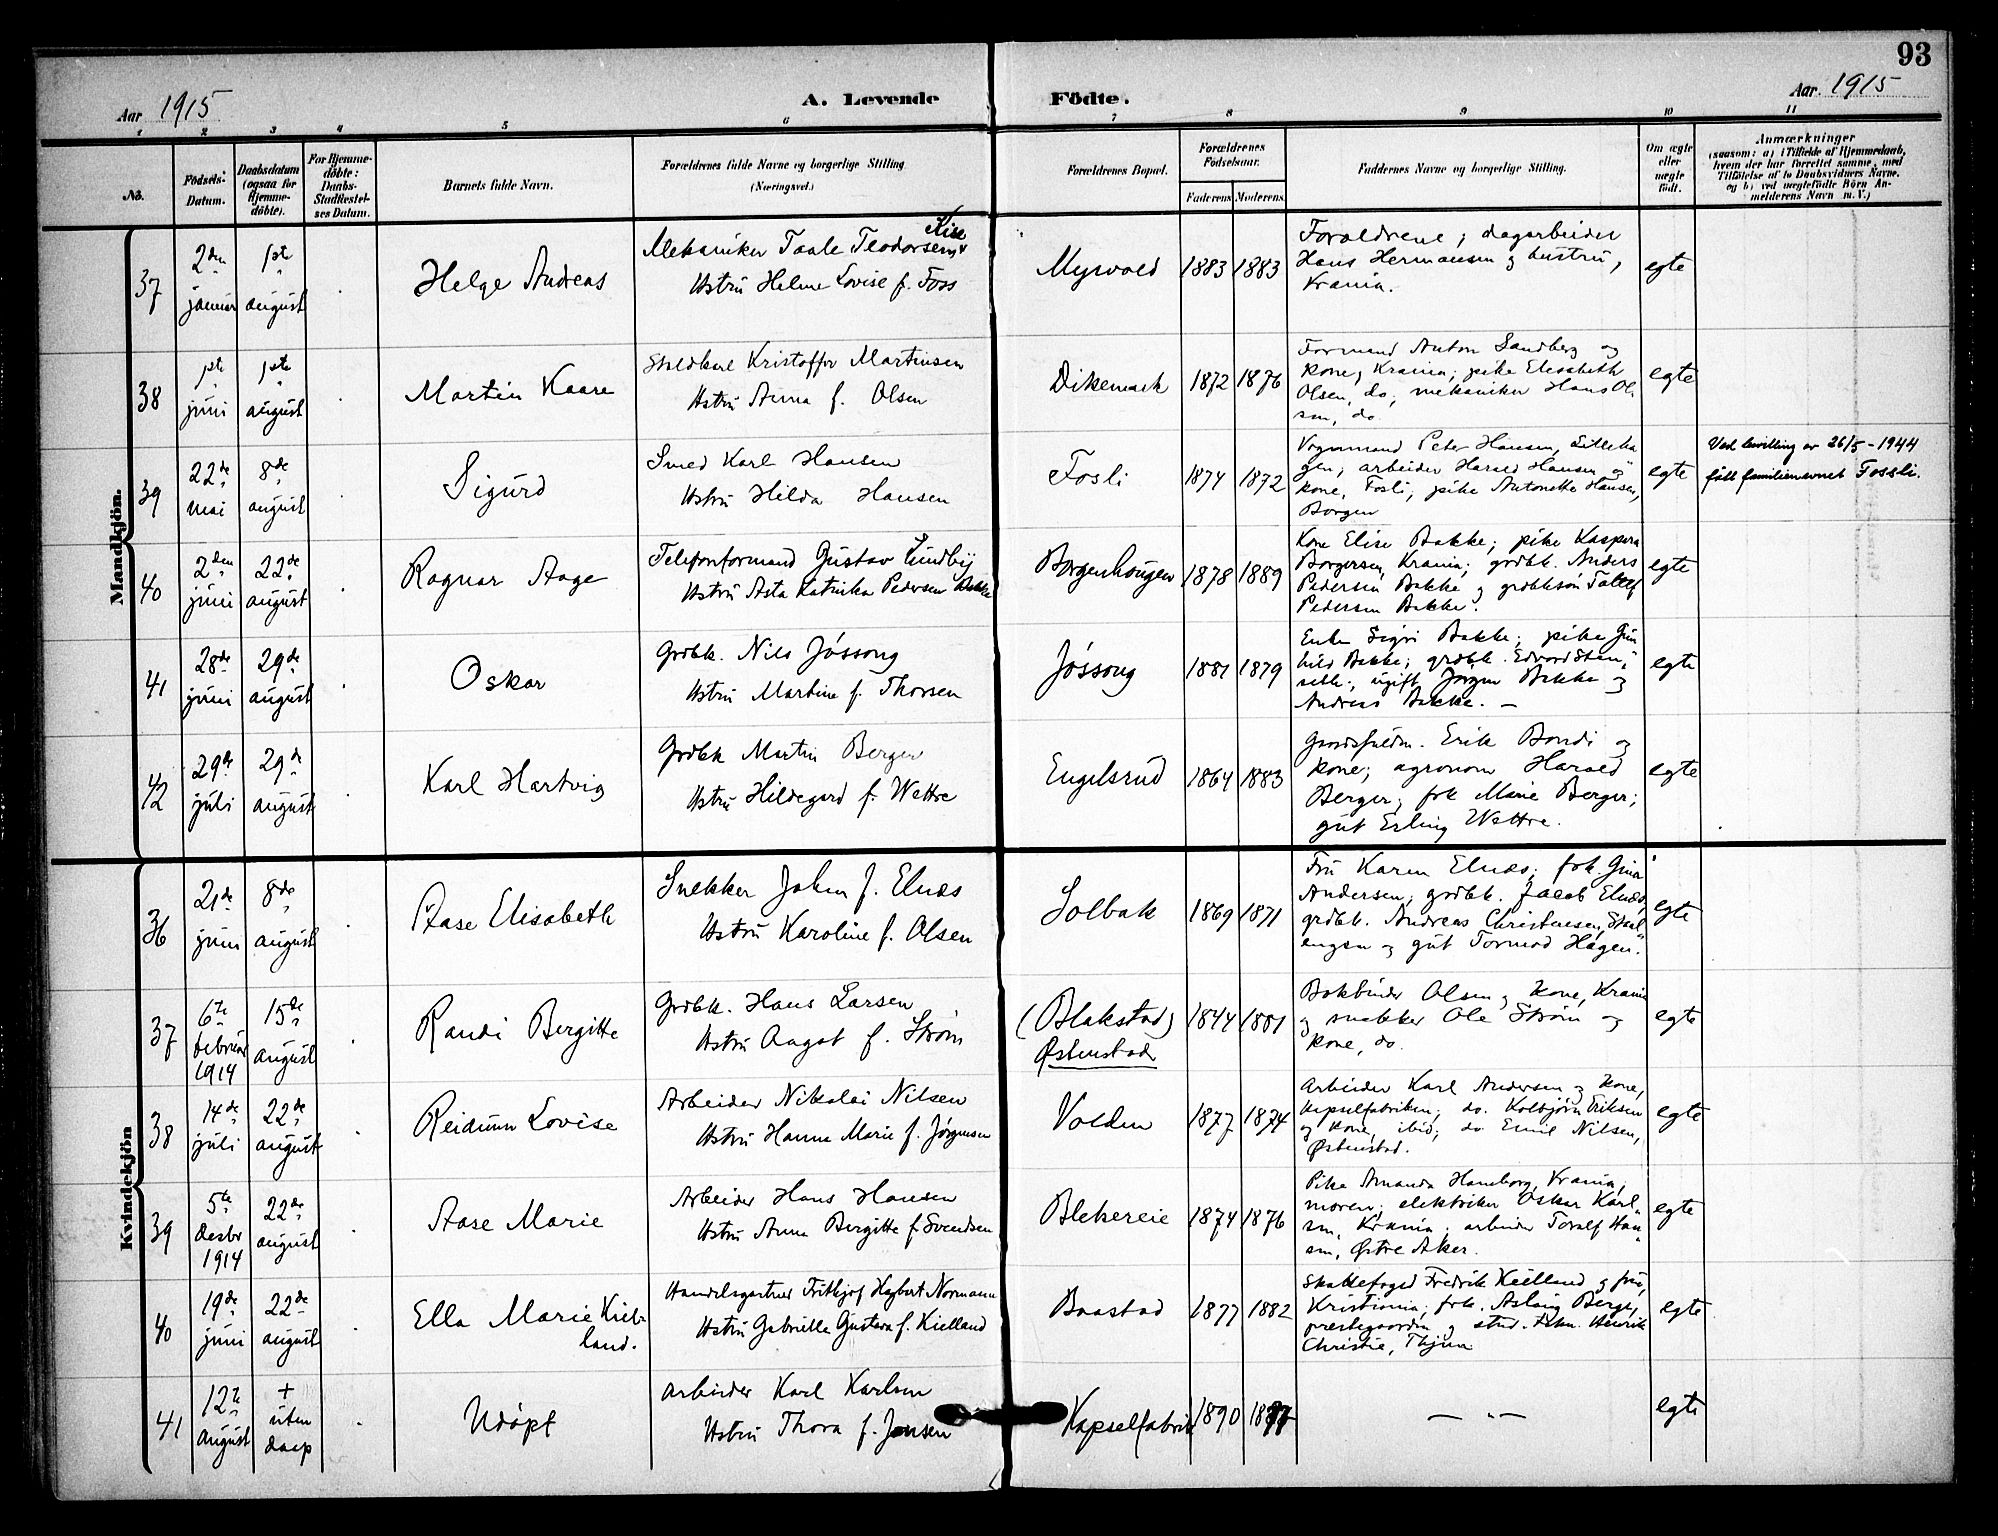 93
Aar 1915
A. Levende
Födte.
Aar. 1915
1 2 3 4 5 6 7 8 9 10 11
No.
Födsels-Datum.
Daabsdatum (ogsaa for Hjemme-döbte).
For Hjemme-döbte: Daabs-Stadfæstel-ses Datum.
Barnets fulde Navn.
Forældrenes fulde Navne og borgerlige Stilling
(Næringsvei.)
Forældrenes Bopæl.
Forældrenes Födselsaar.
Faderens Moderens
Faddernes Navne og borgerlige Stilling.
Om ægte eller uægte födt.
Anmærkninger
(saasom: a) i Tilfælde af Hjemmedaab,
hvem der har forrettet samme, med
Tilföielse af to Daabsvidners Navne.
og b) ved uægtefödte Börn An-
melderens Navn m. V.)
Mandkjön.
37
2den januar
1ste august
Helge Andreas
Mekaniker Taale Teodorsen Kise
Hstru Helene Lovise f. Foss
Myrvold
1883 1883
Foroldrene; dagarbeider
Hans Hermansen og hustru,
Krania.
egte
38
1ste juni
1ste august
Martin Kaare
Kristoffer Martinsen
Hstru Anna f. Olsen
Dikemark
1872 1876
Formand Anton Sandberg og
kone, Krania; pike Elisabeth
Olsen, do; mekaniker Hans Ol-
sen, do.
egte
39
22de mai
8de august
Sigurd
Smed Karl Hansen
Hstru Hilda Hansen
Fosli
1874 1872
Vognmand Peter Hansen, Lilleha
gen; arbeider Harald Hansen og
kone, Fosli; pike Antonette Hansen,
Borgen
egte
Ved bevilling av 26/5 - 1944
fått familienavnet Fossli.
40
2den juni
22de august
Ragnar Aage
Telefonformand Gustav Lundby
Hstru Asta Katinka Pedersen Bakke
Borgenhougen
1878 1889
Kone Elise Bakke; pike Kaspara
Borgersen, Krania; grdbk. Anders
Pedersen Bakke og grdbksön Tollef
Pedersen Bakke.
egte
41
28de juni
29de august
Oskar
Grdbk. Nils Jössong
Hstru Martine f. Thorsen
Jössong
1881 1879
Enke Sigri Bakke; pike Gun
hild Bakke; grdbk. Edvard
ugift Jørgen Bakke og
Andreas Bakke. —
egte
42
29de juli
29de august
Karl Hartvig
Grdbk Martin Berger
Hstru Hildegard f. Wettre
Engelsrud
1864 1883
Gaardsfuldm. Erik Bondi og
kone; agronom Harald
Berger; frk Marie Berger;
gut Erling Wettre.
egte
Kvindekjön
36
21de juni
8de august
Aase Elisabeth
Snekker Johan f. Elnæs
Hstru Karoline f. Olsen
Solbak
1869 1871
Fru Karen Elnæs; frk. Gina
Andersen; grdbk. Jacob Elnæs,
grdbk. Andreas Christensen,
engen og gut Tormod Hagen.
egte
37
6te februar 1914
15de august
Randi Bergitte
Grdbk. Hans Larsen
Hstru Aagot f. Strøm
(Blakstad)
Østenstad
1844 1881
Bokbinder Olsen og kone, Krania
og snekker Ole Strøm og
kone, do.
egte
38
14de juli
22de august
Reidunn Lovise
Arbeider Nikolai Nilsen
Hstru Hanna Marie f. Jørgensen
Volden
1877 1874
Arbeider Karl Andersen og kone,
Kapselfabriken; do. Kolbjörn Eriksen
og kone, ibid; do Emil Nilsen,
Østenstad.
egte
39
5te desbr 1914
22de august
Aase Marie
Arbeider Hans Hansen
Hstru Anna Bergitte f. Svendsen
Blekereie
1874 1876
Pike Amanda Hamborg, Krania;
moren; elektriker Oskar Karl-
sen, Krania; arbeider Toralf Han-
sen, Østre Aker.
egte
40
19de juni
22de august
Ella Marie Kiel-
land.
Handelsgartner Frithjof Hagbart Normann
Hstru Gabrielle Gustava f. Kielland
Baastad
1877 1882
Skattefoged Fredrik Kielland og fru,
Kristiania; frk. Aslaug Berge,
prestegaarden og stud. tekn. Henrik
Christie,
egte
41
12te august
+ uten daap
Udöpt
Arbeider Karl Karlsen
Hstru Thora f. Jensen
Kapselfabrik
1890
— „ —
egte